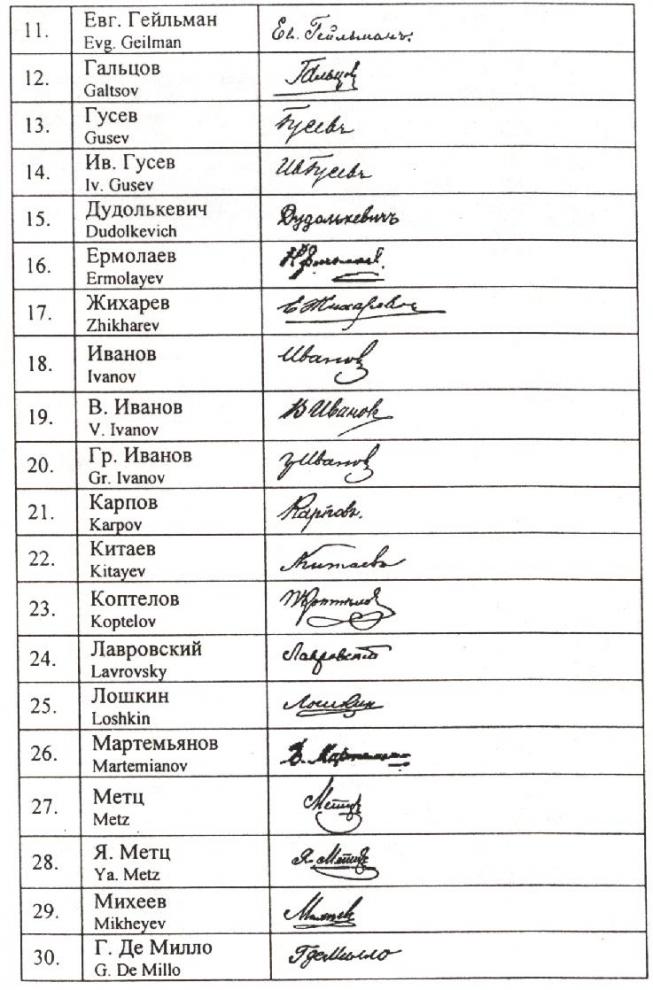 11. Евг. Гейльман Ев. Гейльманъ.
Evg. Geilman
12. Гальцов Гальцов
Galtsov
13. Гусев Гусевъ
Gusev
14. Ив. Гусев ИвГусевъ
Iv. Gusev
15. Дудолькевич Дудолькевичъ
Dudolkevich
16. Ермолаев
Ermolayev
17. Жихарев Е Жихарев
Zhikharev
18. Иванов Иванов
Ivanov
19. В. Иванов В Иванов
V. Ivanov
20. Гр. Иванов Иванов
Gr. Ivanov
21. Карпов Карповъ.
Karpov
22. Китаев Китаевъ
Kitayev
23. Коптелов
Koptelov
24. Лавровский Лавровскій
Lavrovsky
25. Лошкин Лошкин
Loshkin
26. Мартемьянов
Martemianov
27. Метц Метцъ
Metz
28. Я. Метц Я. Метцъ
Ya. Metz
29. Михеев
Mikheyev
30. Г. Де Милло ГдеМилло
G. De Millo